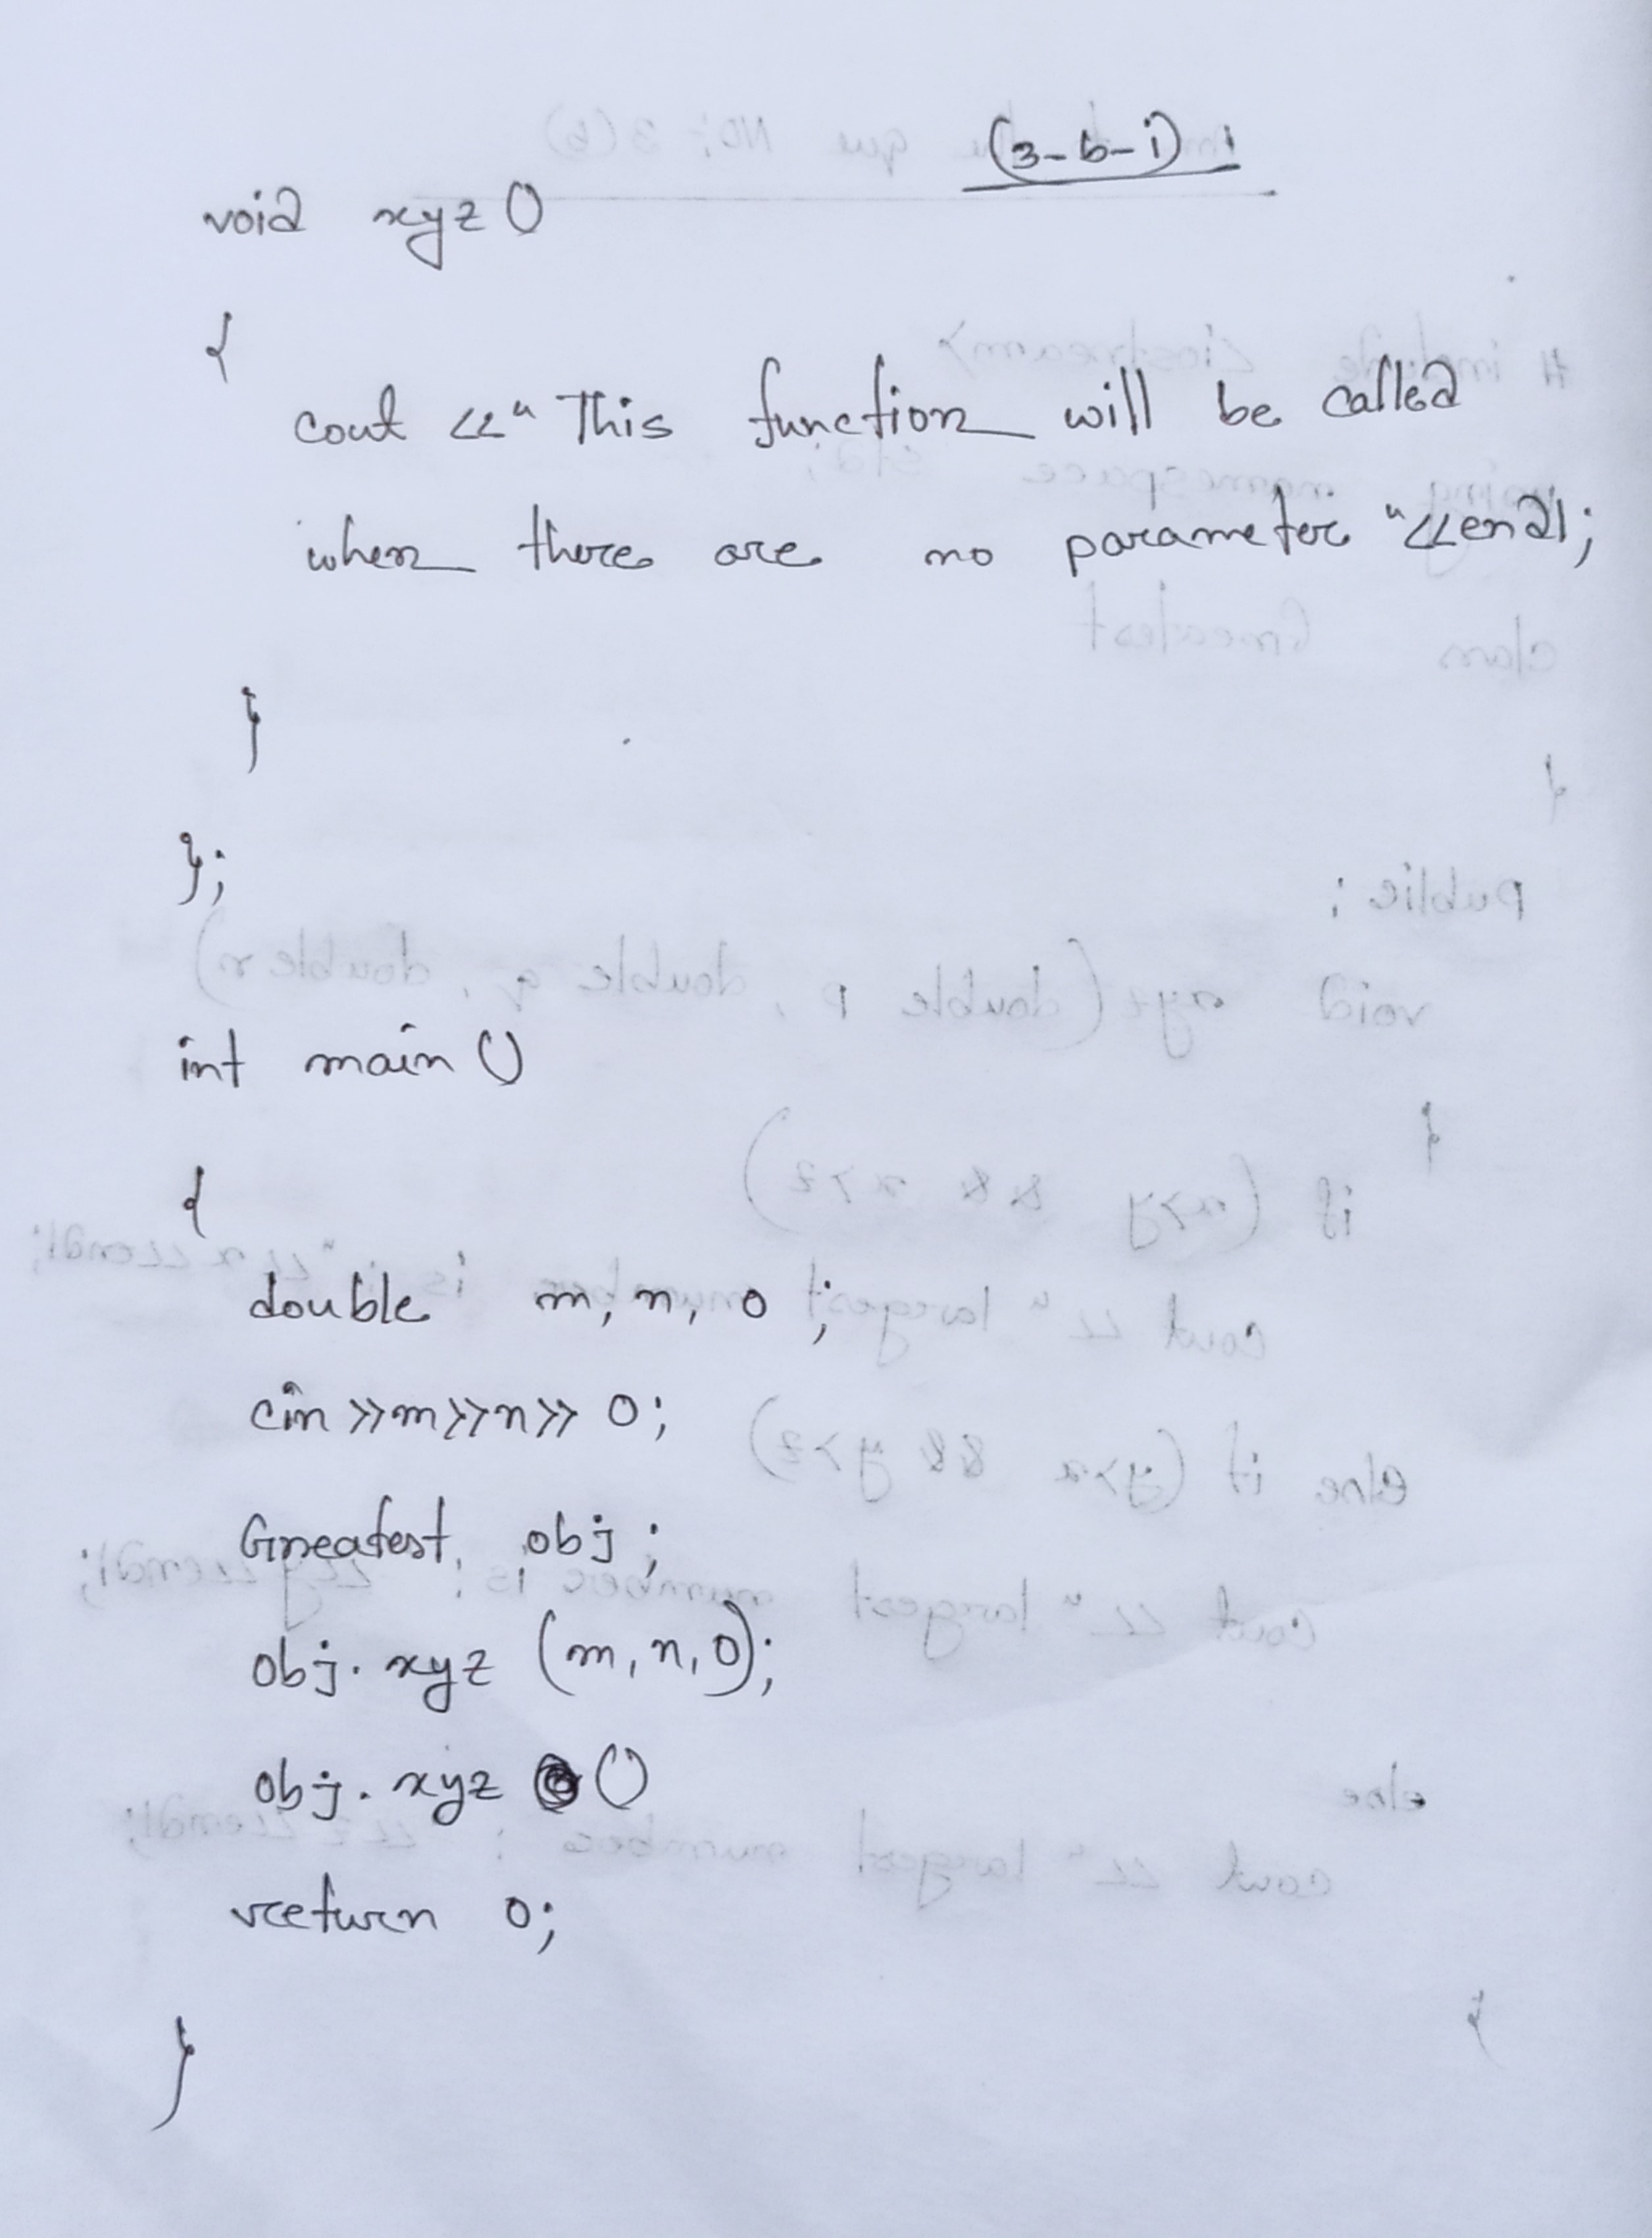 (3-b-i) :
void xyz ()
{
cout <<" This function will be called
when there are no parameter "<<endl;
}
};
int main ()
{
double m, n, o ;
cin >>m>>n>> o;
Greatest obj ;
obj. xyz (m, n, o);
obj. xyz ()
return 0;
}